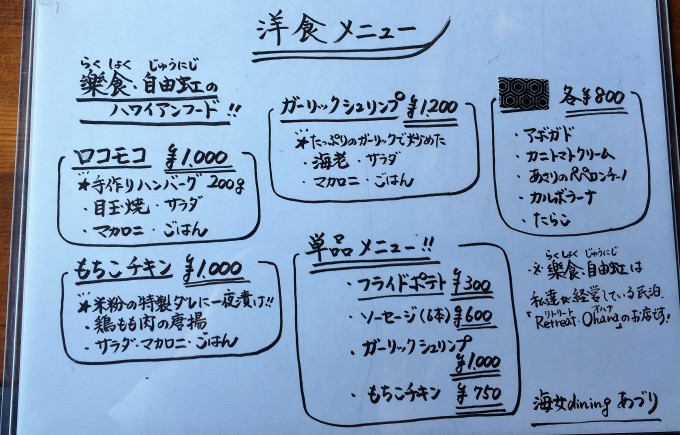 洋食メニュー
らくしょく じゅうにじ
樂食・自由虹の
ハワイアンフード!!
ロコモコ ¥1,000
★手作りハンバーグ 200g
・目玉焼・サラダ
・マカロニ・ごはん
もちこチキン ¥1,000
★米粉の特製ダレに一夜漬け!!
・鶏もも肉の唐揚
・サラダ・マカロニ・ごはん
ガーリックシュリンプ ¥1,200
★たっぷりのガーリックで炒めた
・海老・サラダ
・マカロニ・ごはん
単品メニュー!!
・フライドポテト ¥300
・ソーセージ(6本) ¥600
・ガーリックシュリンプ
¥1,000
・もちこチキン ¥750
各¥800
・アボガド
・カニトマトクリーム
・あさりのペペロンチーノ
・カルボラーナ
・たらこ
らくしょく じゅうにじ
※樂食・自由虹は
私達が経営している民泊
リトリート オハナ
「Retreat・Ohana」のお店です!
海女dining あづり